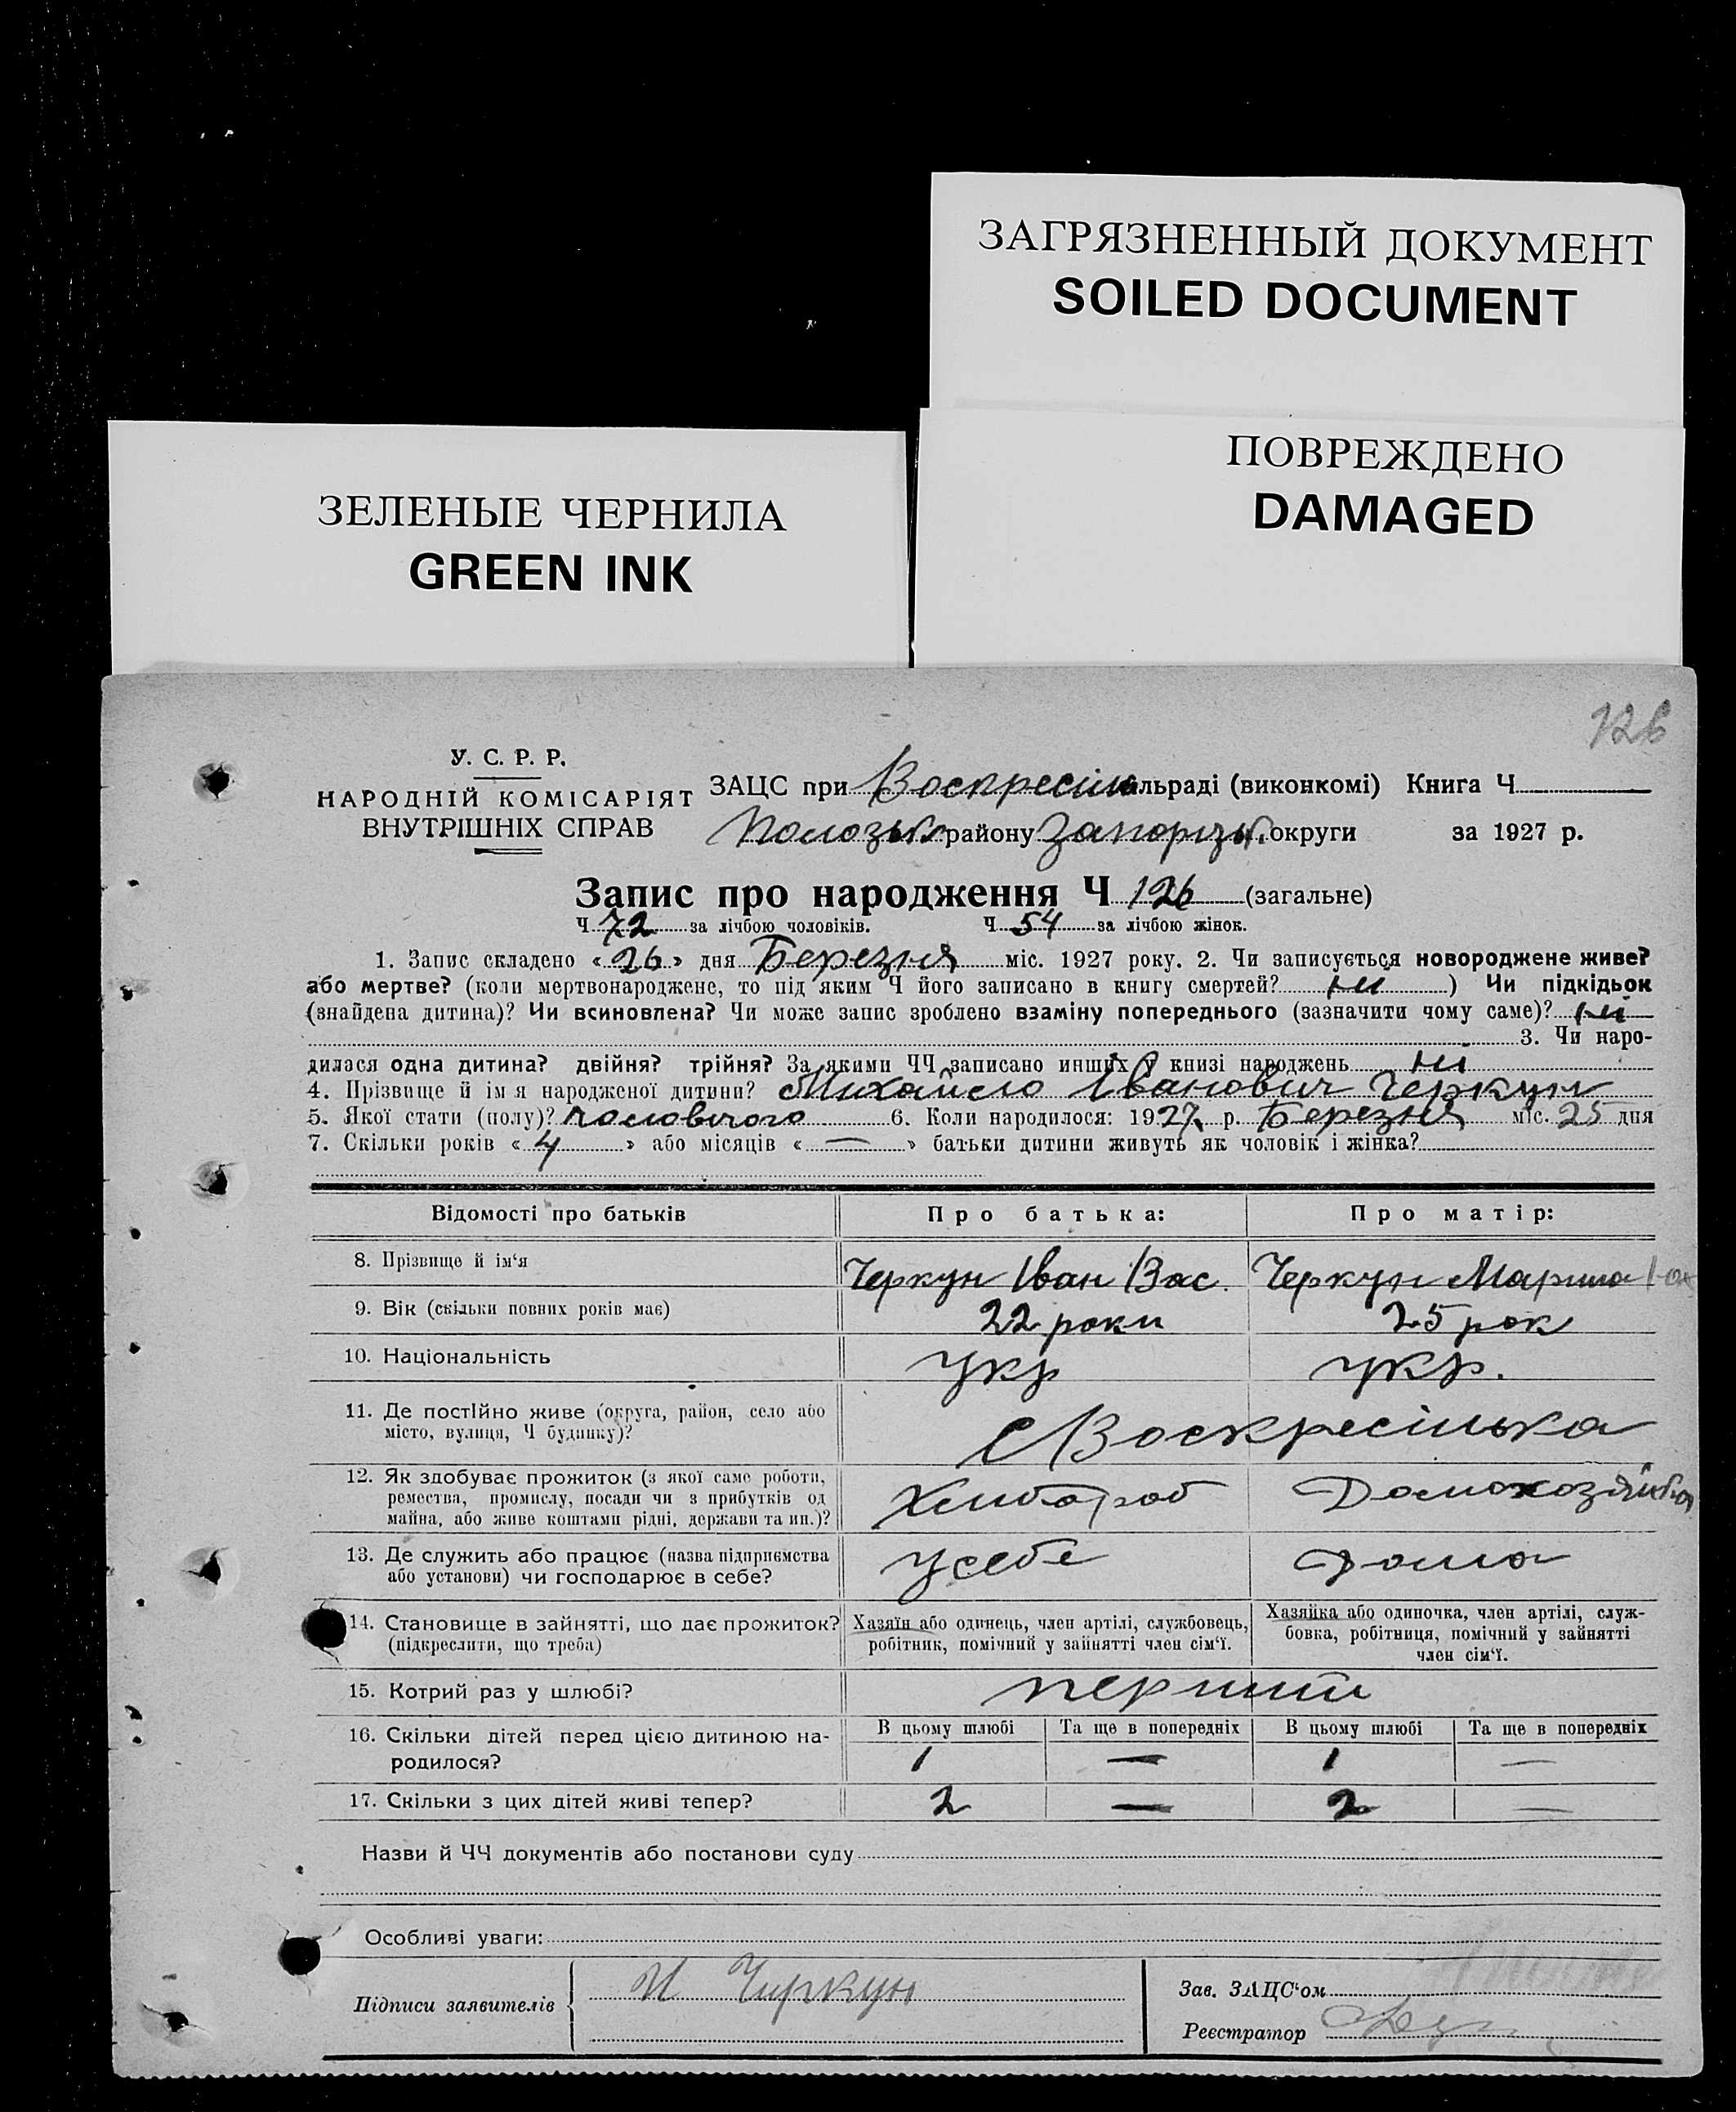 ЗАГРЯЗНЕННЫЙ ДОКУМЕНТ
SOILED DOCUMENT
ПОВРЕЖДЕНО
DAMAGED
ЗЕЛЕНЫЕ ЧЕРНИЛА
GREEN INK
126
У. С. Р. Р.
НАРОДНІЙ КОМІСАРІЯТ
ВНУТРІШНІХ СПРАВ
ЗАЦС при Воскресін сільраді (виконкомі) Книга Ч
Полозьк району Запорізьк. округи за 1927 р.
Запис про народження Ч 126 (загальне)
Ч 72 за лічбою чоловіків. Ч 54 за лічбою жінок.
1. Запис складено « 26 » дня Березня міс. 1927 року. 2. Чи записується новороджене живе?
або мертве? (коли мертвонароджене, то під яким Ч його записано в книгу смертей? ні ) Чи підкідьок
(знайдена дитина)? Чи всиновлена? Чи може запис зроблено взаміну попереднього (зазначити чому саме)? ні
3. Чи наро-
дилася одна дитина? двійня? трійня? За якими ЧЧ записано инших в книзі народжень ні
4. Прізвище й ім я народженої дитини? Михайло Іванович Черкун
5. Якої стати (полу)? чоловічого 6. Коли народилося: 1927 р. Березня міс. 25 дня
7. Скільки років « 4 » або місяців « — » батьки дитини живуть як чоловік і жінка?
Відомості про батьків Про батька: Про матір:
8. Прізвище й ім‘я Черкун Іван Вас. Черкун Марина
9. Вік (скільки повних років має) 22 роки 25 рок
10. Національність укр укр.
11. Де постійно живе (округа, район, село або
місто, вулиця, Ч будинку)? с Воскресінька
12. Як здобуває прожиток (з якої саме роботи,
ремества, промислу, посади чи з прибутків од
майна, або живе коштами рідні, держави та ин.)? Хлибороб
13. Де служить або працює (назва підприємства
або установи) чи господарює в себе? у себе дома
14. Становище в зайнятті, що дає прожиток?
(підкреслити, що треба)
Хазяїн або одинець, член артілі, службовець,
робітник, помічний у зайнятті член сім‘ї.
Хазяйка або одиночка, член артілі, служ-
бовка, робітниця, помічний у зайнятті
член сім‘ї.
15. Котрий раз у шлюбі? перший
16. Скільки дітей перед цією дитиною на-
родилося?
В цьому шлюбі Та ще в попередніх В цьому шлюбі Та ще в попередніх
1 — 1 —
17. Скільки з цих дітей живі тепер? 2 — 2 —
Назви й ЧЧ документів або постанови суду
Особливі уваги:
Підписи заявителів И Чиркун
Зав. ЗАЦС‘ом
Реєстратор